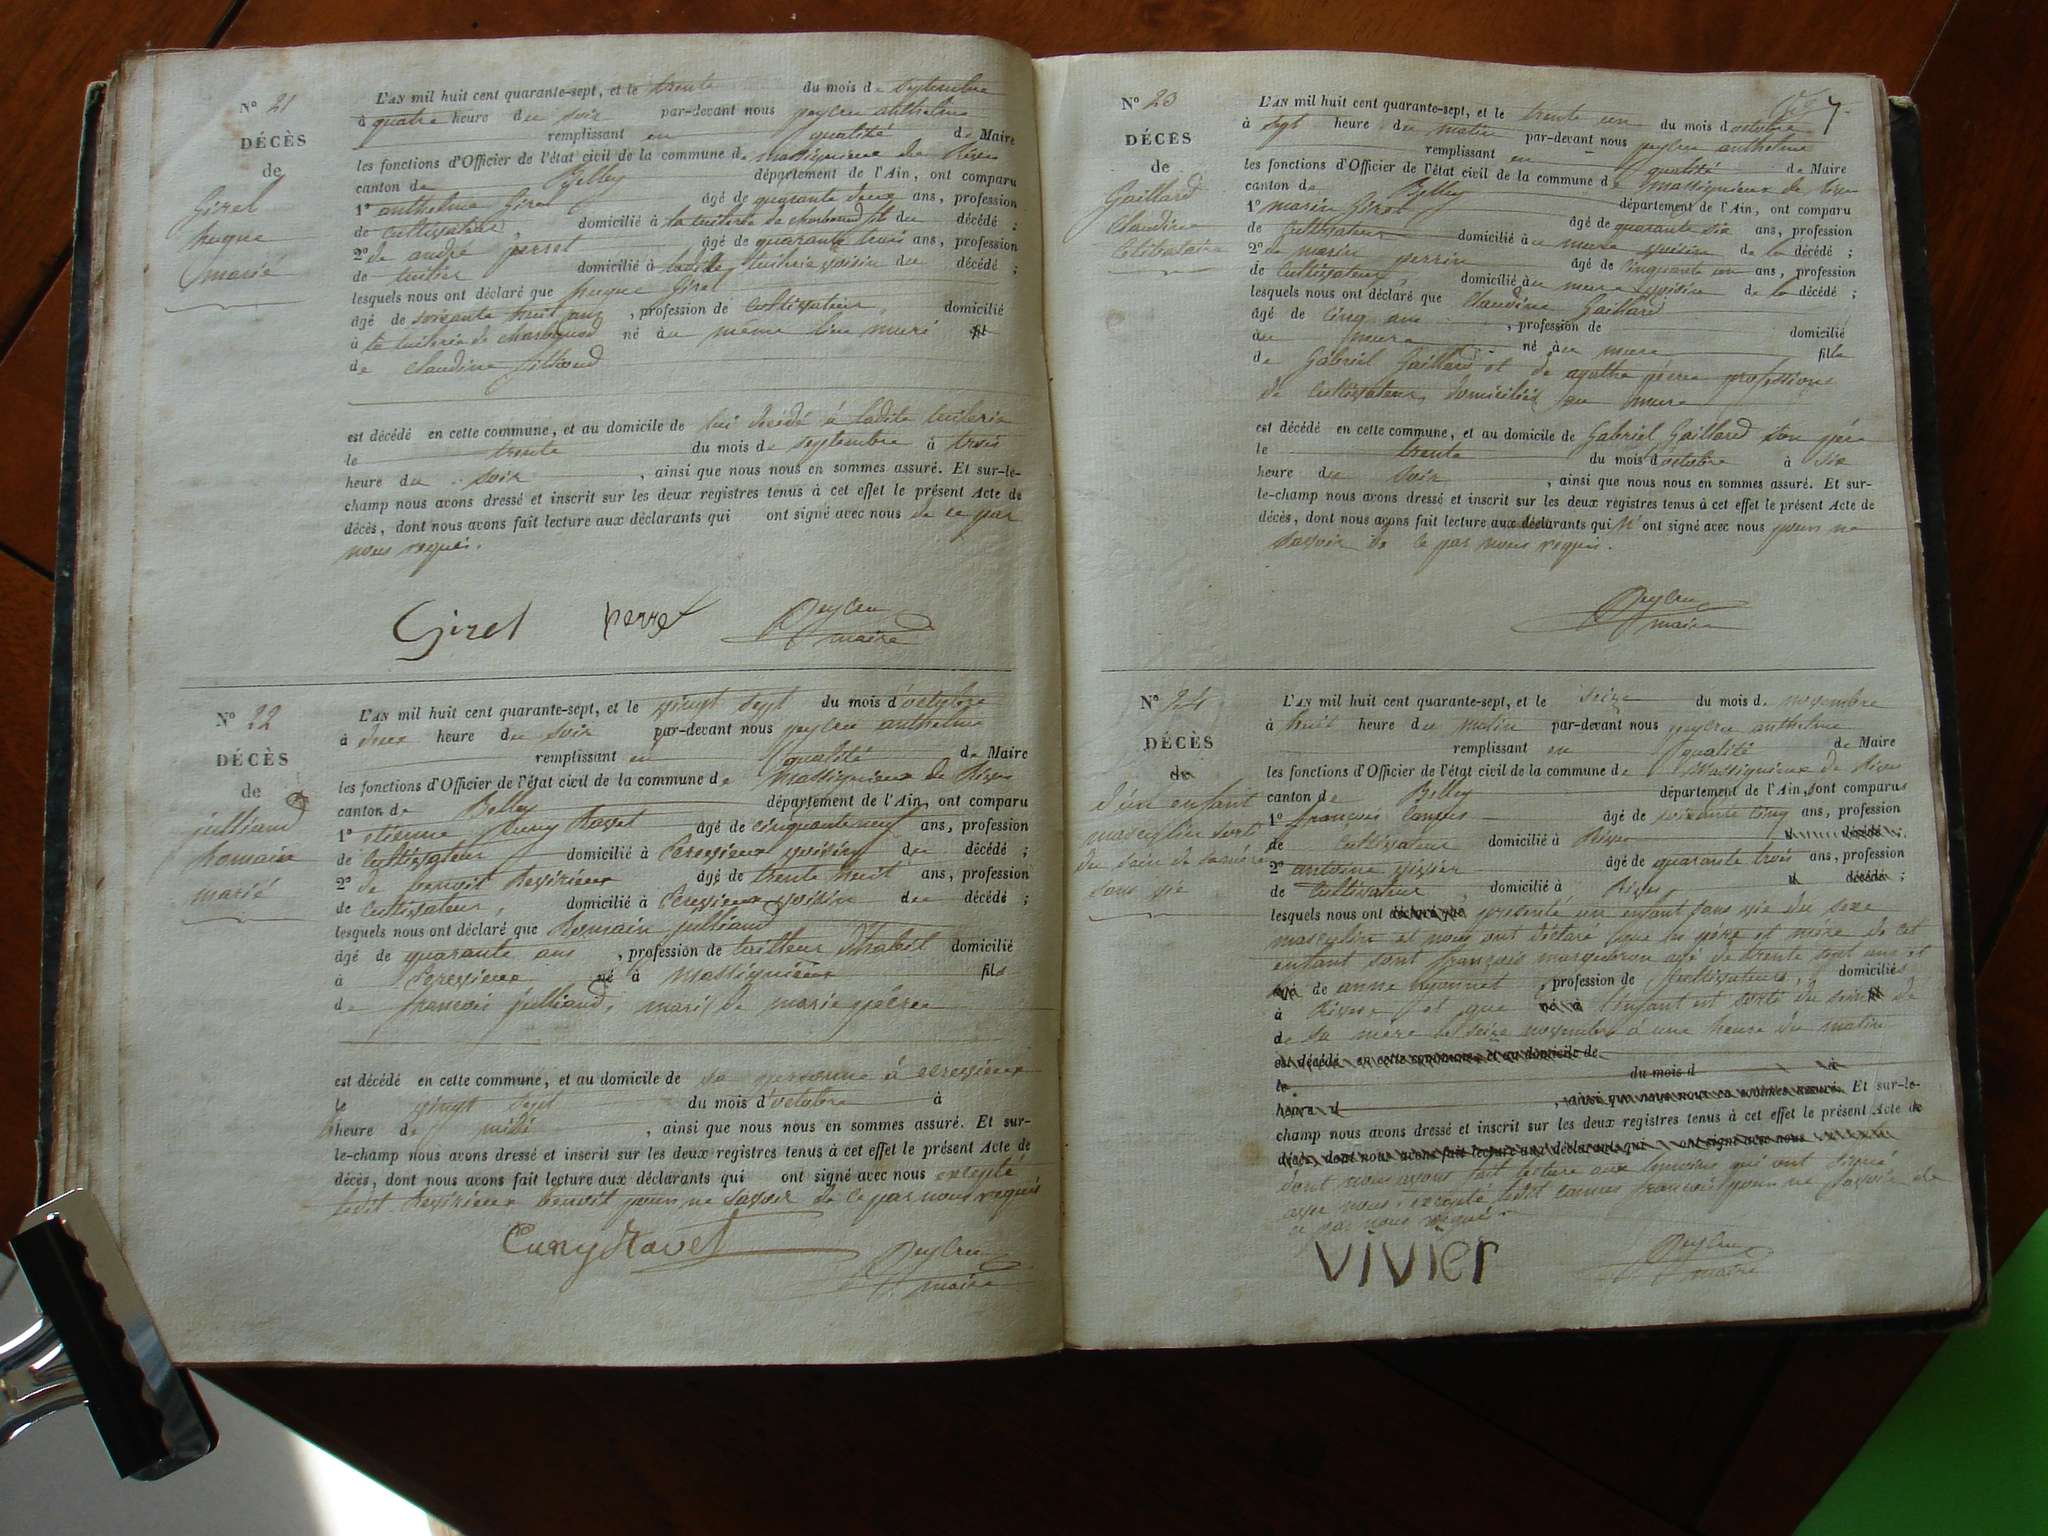 N° 21
DÉCÈS
de
Girel
hugue
marié
L'AN mil huit cent quarante-sept, et le trente du mois de septembre
à quatre heure du soir par-devant nous peylou anthelme
remplissant en qualité de Maire
les fonctions d'Officier de l'état civil de la commune de massignieux de Rives
canton de Belley département de l'Ain, ont comparu
1° anthelme Girel âgé de quarante deux ans, profession
de cultivateur, domicilié à la tuilerie de fils du décédé ;
2° de andré perret âgé de quarante trois ans, profession
de tuilier domicilié à ladite tuilerie voisin du décédé ;
lesquels nous ont déclaré que hugue Girel
âgé de soixante huit ans, profession de cultivateur, domicilié
à la tuilerie de né au même lieu mari
de claudine
est décédé en cette commune, et au domicile de lui décédé à ladite tuilerie
le trente du mois de septembre à trois
heure du soir, ainsi que nous nous en sommes assuré. Et sur-le-
champ nous avons dressé et inscrit sur les deux registres tenus à cet effet le présent Acte de
décès, dont nous avons fait lecture aux déclarants qui ont signé avec nous de ce par
nous requis.
Girel perret
maire
N° 22
DÉCÈS
de
julliand
Romain
marié
L'AN mil huit cent quarante-sept, et le vingt sept du mois d'octobre
à deux heure du soir par-devant nous anthelme
remplissant en qualité de Maire
les fonctions d'Officier de l'état civil de la commune de Massignieux de Rives
canton de Belley département de l'Ain, ont comparu
1° etienne Cuny Ravet âgé de cinquante neuf ans, profession
de Cultivateur domicilié à voisin du décédé ;
2° de benoit âgé de trente huit ans, profession
de Cultivateur, domicilié à voisin du décédé ;
lesquels nous ont déclaré que Romain julliand
âgé de quarante ans, profession de tailleur d'habit domicilié
à né à Massignieux fils
de françois julliand, mari de marie
est décédé en cette commune, et au domicile de sa personne à
le vingt sept du mois d'octobre à
heure de midi, ainsi que nous nous en sommes assuré. Et sur-
le-champ nous avons dressé et inscrit sur les deux registres tenus à cet effet le présent Acte de
décès, dont nous avons fait lecture aux déclarants qui ont signé avec nous excepté
ledit benoit pour ne savoir de ce par nous requis
Cuny Ravet
maire
7
N° 23
DÉCÈS
de
Gaillard
Claudine
Célibataire
L'AN mil huit cent quarante-sept, et le trente un du mois d'octobre
à sept heure du matin par-devant nous anthelme
remplissant en qualité de Maire
les fonctions d'Officier de l'état civil de la commune de Massignieux de rives
canton de Belley département de l'Ain, ont comparu
1° marin Girel âgé de quarante six ans, profession
de Cultivateur domicilié au mure voisin de la décédé ;
2° de marin perrin âgé de cinquante un ans, profession
de Cultivateur, domicilié au mure voisin de la décédé ;
lesquels nous ont déclaré que Claudine Gaillard
âgé de cinq ans, profession de domicilié
au mure né au mure fille
de Gabriel Gaillard et de agathe profession
de Cultivateur domiciliés au mure
est décédé en cette commune, et au domicile de Gabriel Gaillard son père
le trente du mois d'octobre à six
heure du soir, ainsi que nous nous en sommes assuré. Et sur-
le-champ nous avons dressé et inscrit sur les deux registres tenus à cet effet le présent Acte de
décès, dont nous avons fait lecture aux déclarants qui n'ont signé avec nous pour ne
savoir de ce par nous requis.
maire
N° 24
DÉCÈS
de
d'un enfant
masculin sorti
du sein de sa mère
sans vie
L'AN mil huit cent quarante-sept, et le seize du mois de novembre
à huit heure du matin par-devant nous anthelme
remplissant en qualité de Maire
les fonctions d'Officier de l'état civil de la commune de Massignieux de Rives
canton de Belley département de l'Ain, sont comparus
1° françois âgé de soixante cinq ans, profession
de Cultivateur domicilié à Rives d décédé ;
2° antoine vivier âgé de quarante trois ans, profession
de Cultivateur, domicilié à Rives, d décédé ;
lesquels nous ont déclaré que présenté un enfant sans vie du sexe
masculin et nous ont déclaré que les père et mère de cet
enfant sont françois âgé de trente sept ans et
âgé de anne, profession de Cultivateurs, domiciliés
à Rives et que né à l'enfant est sorti du sein fil de
de sa mère le seize novembre à une heure du matin
est décédé en cette commune, et au domicile de
le du mois d à
heure d, ainsi que nous nous en sommes assuré. Et sur-le-
champ nous avons dressé et inscrit sur les deux registres tenus à cet effet le présent Acte de
décès, dont nous avons fait lecture aux déclarants qui ont signé avec nous
dont nous avons fait lecture aux témoins qui ont signé
avec nous, excepté ledit françois pour ne savoir de
ce par nous requis.
VIVIER
maire